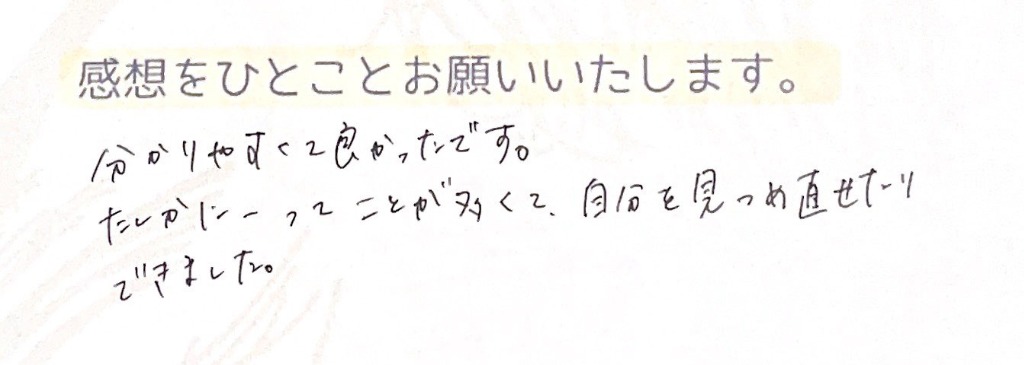 感想をひとことお願いいたします。
分かりやすくて良かったです。
たしかにーってことが多くて、自分を見つめ直せたり
できました。